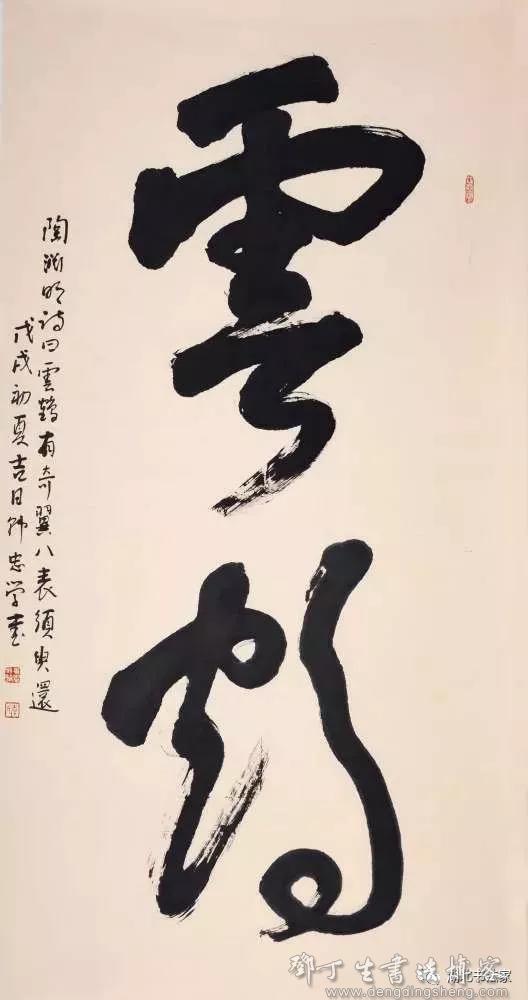 雲鶴
陶渊明诗曰雲鶴有奇翼八表須臾還
戊戌初夏吉日韩忠学书
鄧丁生書法博客
www.dengdingsheng.com
湖北书法家